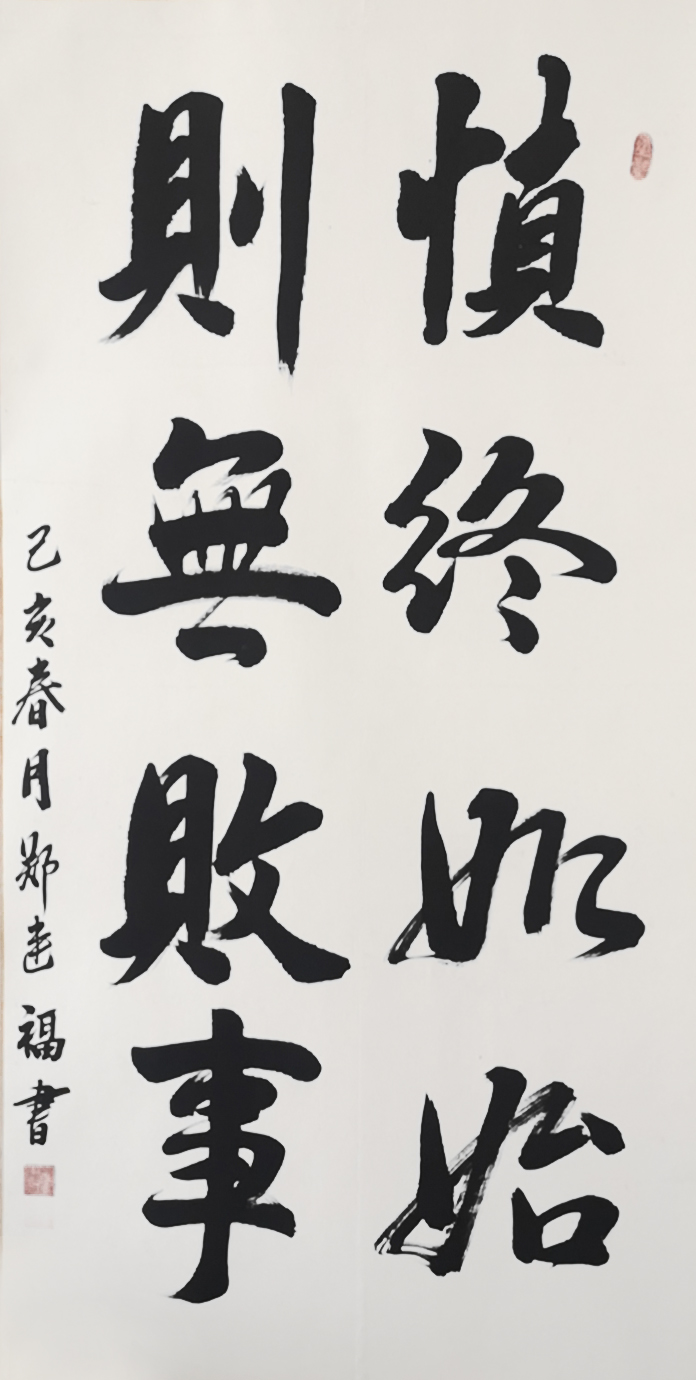 慎終如始
則無敗事
己亥春月鄭建福書